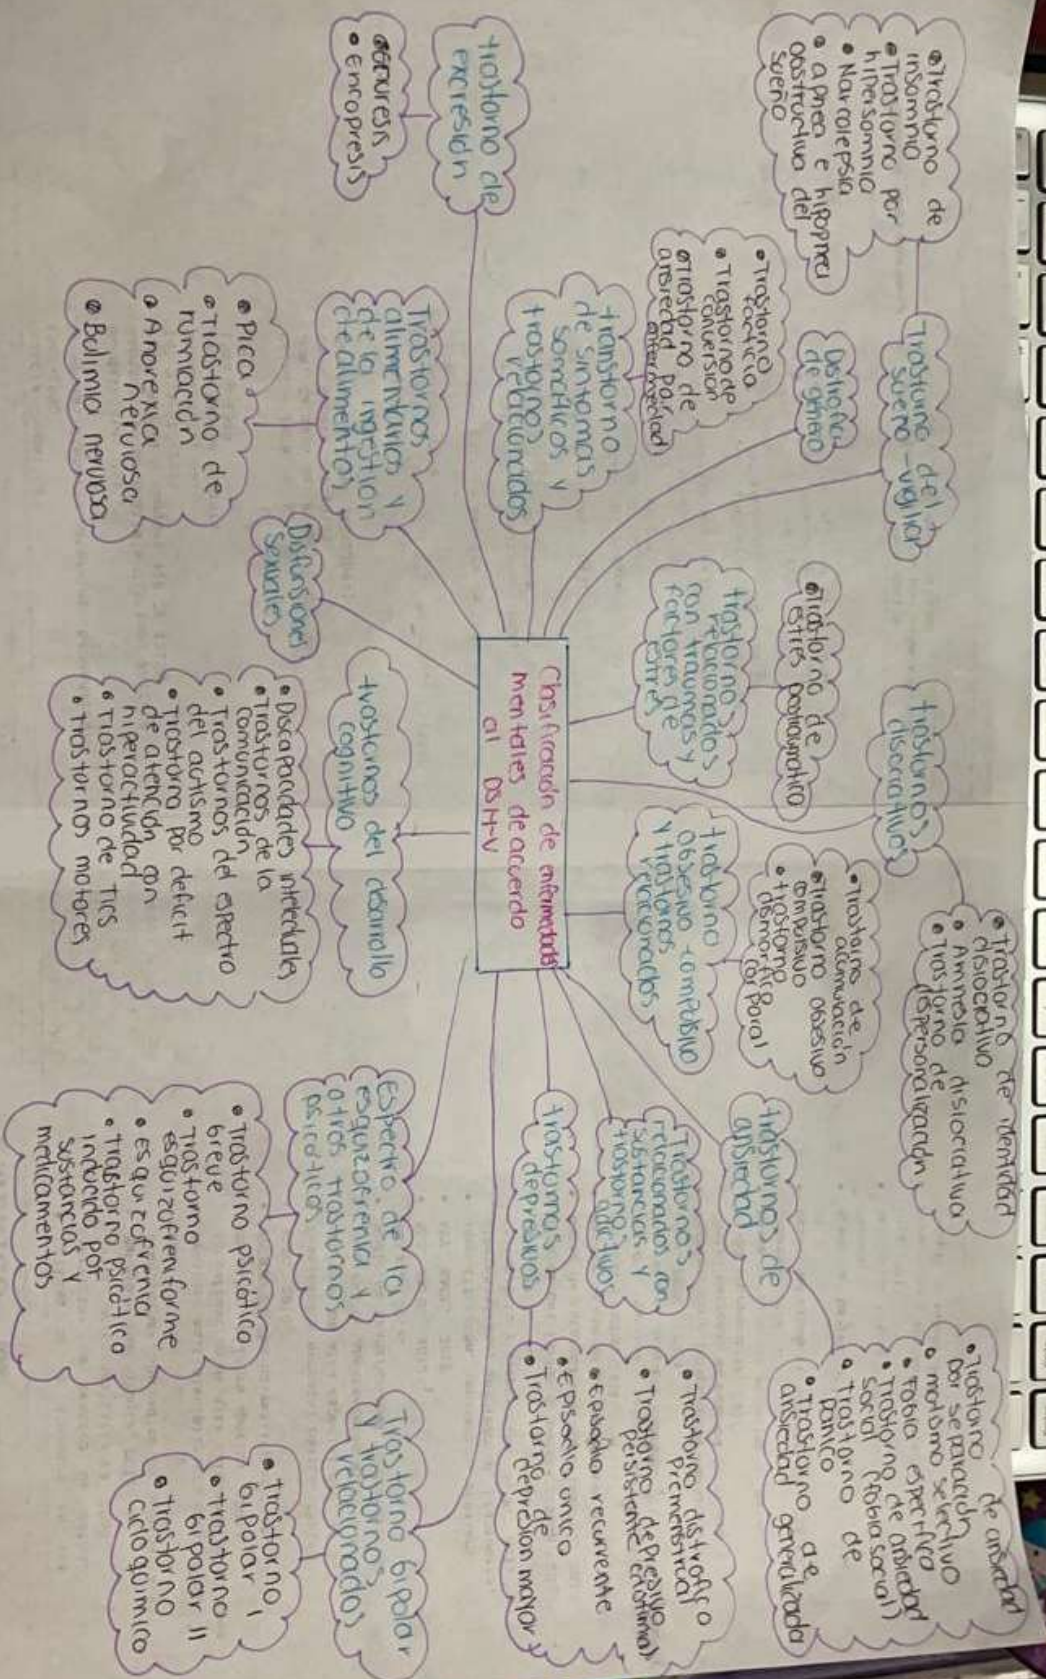 Clasificación de enfermedades
mentales de acuerdo
al DSM-V
Trastorno del
sueño-vigilia
•Trastorno de
insomnio
•Trastorno por
hipersomnio
•Narcolepsia
•apnea e hipopnea
obstructiva del
sueño
Disforia
de género
transtorno
de sintomas
somáticos y
trastornos
relacionados
•Trastorno
facticio
•Trastorno de
conversión
•Trastorno de
ansiedad por
enfermedad
trastorno de
excresión
•enuresis
•Encopresis
Trastornos
alimentarios y
de la ingestion
de alimentos
•Pica
•Trastorno de
rumiación
•Anorexia
nerviosa
•Bulimia nerviosa
Disfunsiones
sexuales
trastornos
disociativos
•Trastorno de identidad
disiociativo
•Amnesia disiociativa
•Trastorno de
despersonalización
trastornos
relacionados
con traumas y
factores de
estres
•Trastorno de
estres postraumatico
trastorno
obsesivo compulsivo
y trastornos
relacionados
•Trastorno de
acumulación
•Trastorno obsesivo
compulsivo
•trastorno
dismorfico
corporal
trastornos del desarrollo
cognitivo
•Discapacidades intelectuales
•Trastornos de la
comunicación
•Trastornos del espectro
del autismo
•Trastorno por deficit
de atención con
hiperactividad
•Trastorno de TICS
•Trastornos motores
trastornos de
ansiedad
•Trastorno de ansiedad
por separación
•mutismo selectivo
•Fobia especifica
•Trastorno de ansiedad
social (fobia social)
•Trastorno de
panico
•Trastorno de
ansiedad generalizada
Trastornos
relacionados con
sustancias y
trastornos
adictivos
trastornos
depresivos
•Trastorno distrofico
premenstrual
•Trastorno depresivo
persistente (distimia)
•Episodio recurrente
•Episodio unico
•Trastorno de
depresión mayor
Espectro de la
esquizofrenia y
otros trastornos
psicoticos
•Trastorno psicótico
breve
•Trastorno
esquizofreniforme
•esquizofrenia
•trastorno psicótico
inducido por
sustancias y
medicamentos
Trastorno bipolar
y trastornos
relacionados
•Trastorno
bipolar I
•trastorno
bipolar II
•trastorno
cicloquimico